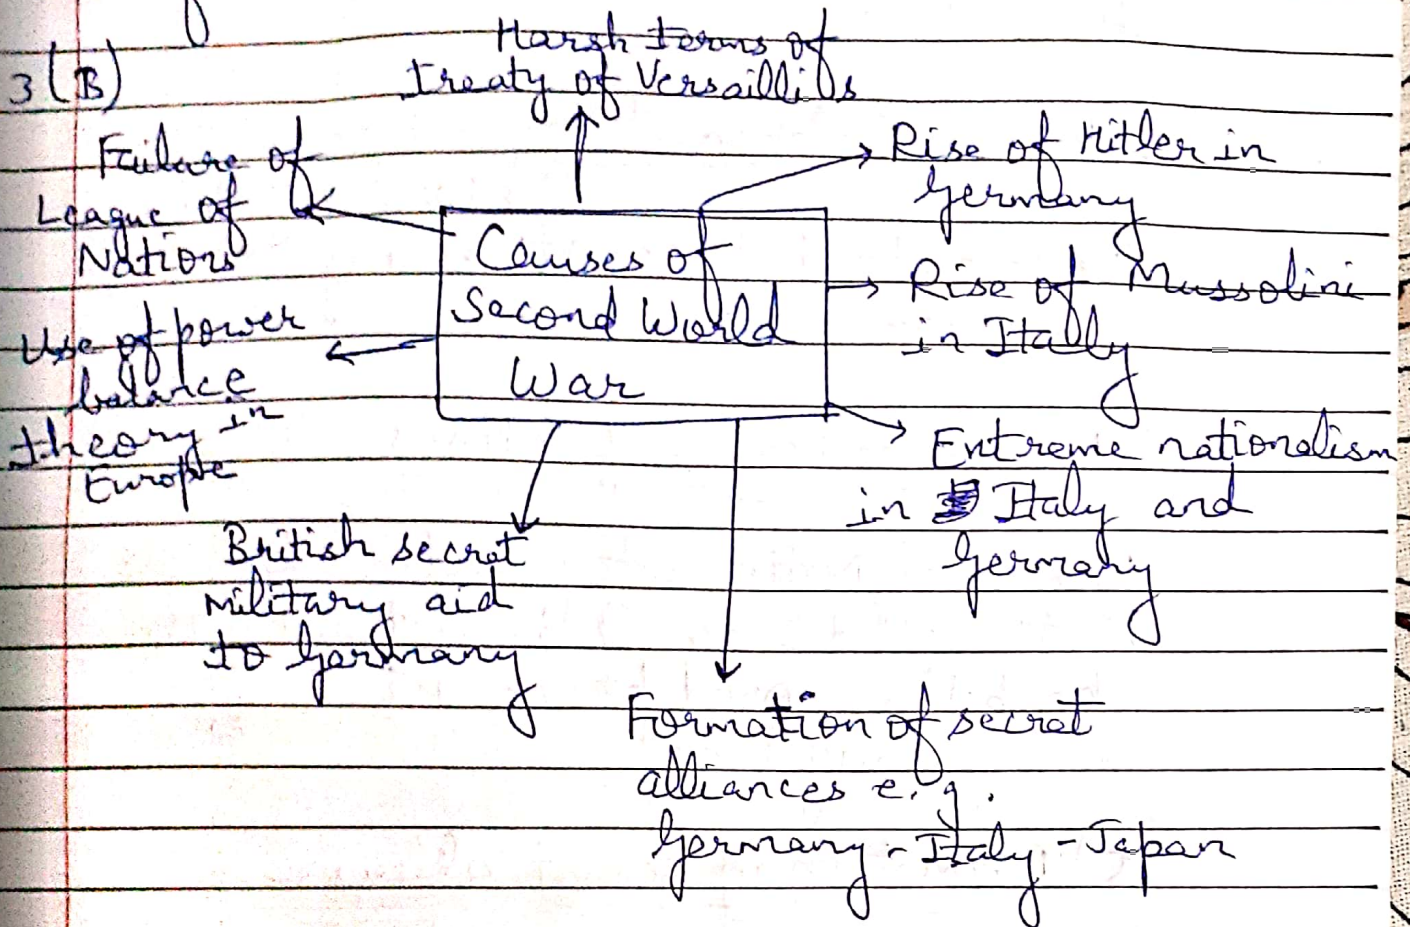 3(B)
Harsh terms of
treaty of Versaillies
Failure of
League of
Nations
Rise of Hitler in
Germany
Causes of
Second World
War
Rise of Mussolini
in Itally
Use of power
balance
theory in
Europe
Extreme nationalism
in Italy and
Germany
British secret
military aid
to Germany
Formation of secret
alliances e.g.
Germany-Italy-Japan